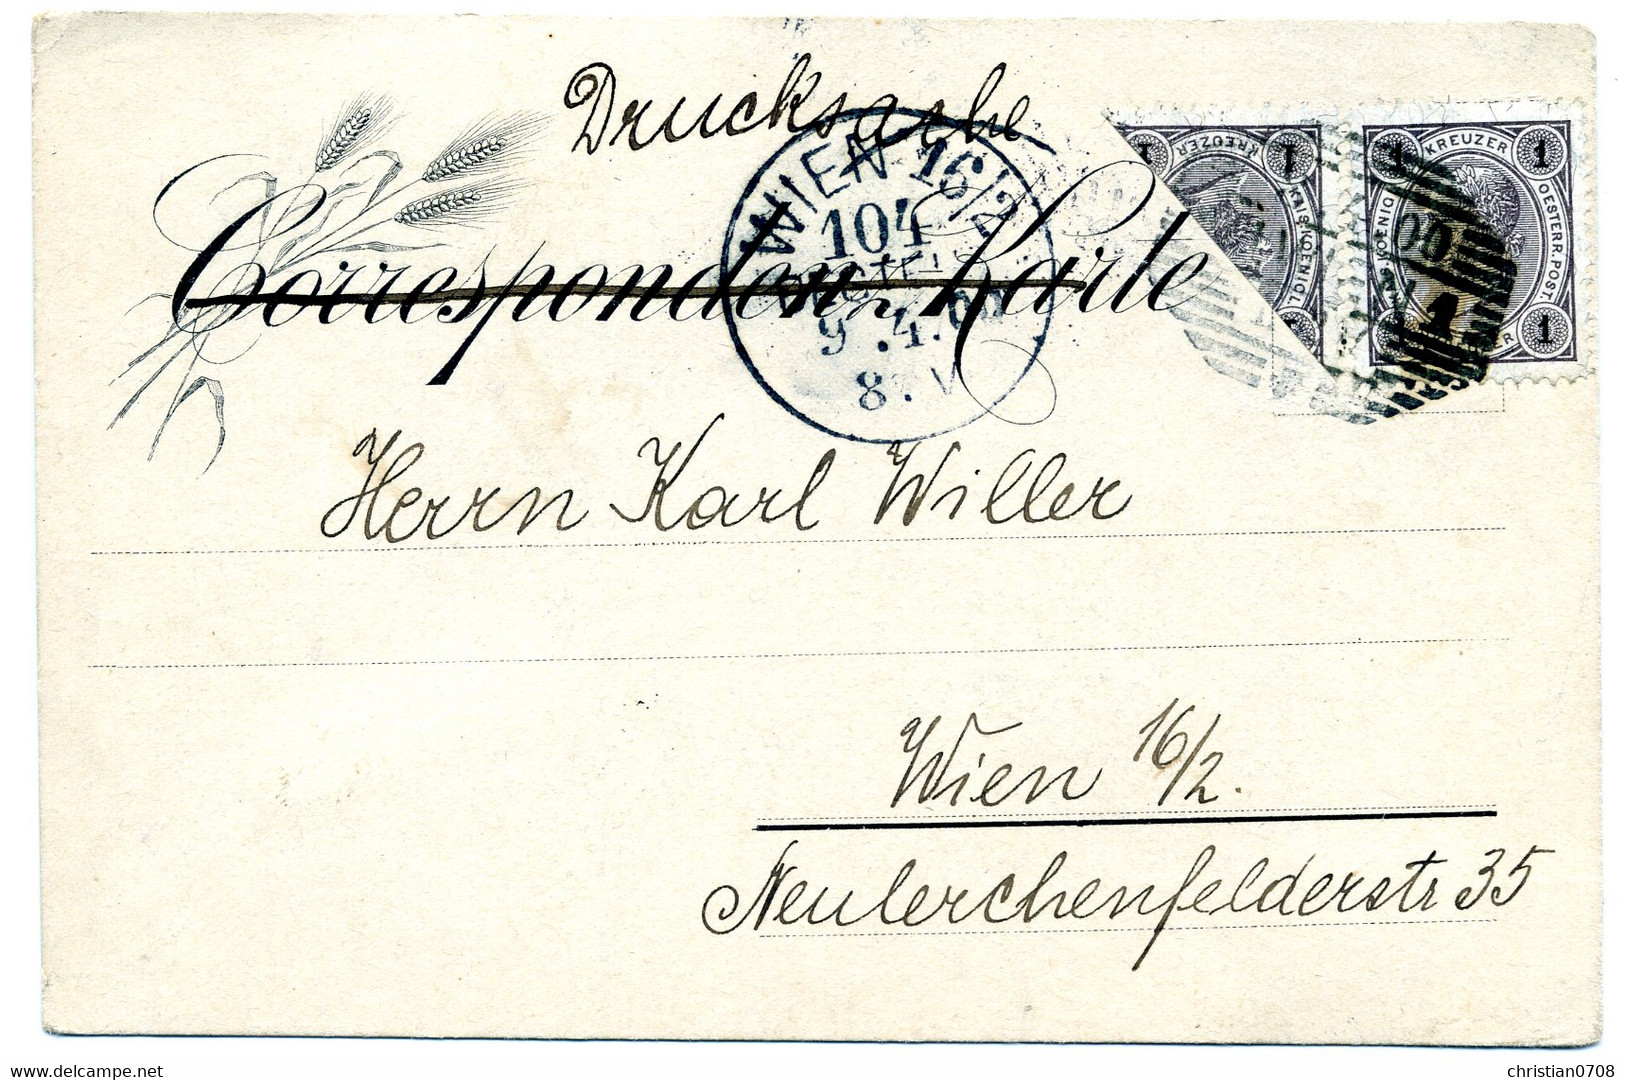 Drucksache
Correspondenz-Karte
WIEN 16/2
104
BESTELLT
9.4.00
8.V
1 KREUZER 1
KAIS. KOENIGL.
1 KREUZER 1
OESTERR. POST.
1
00
1
Herrn Karl Willer
Wien 16/2.
Neulerchenfelderstr 35
delcampe.net
christian0708